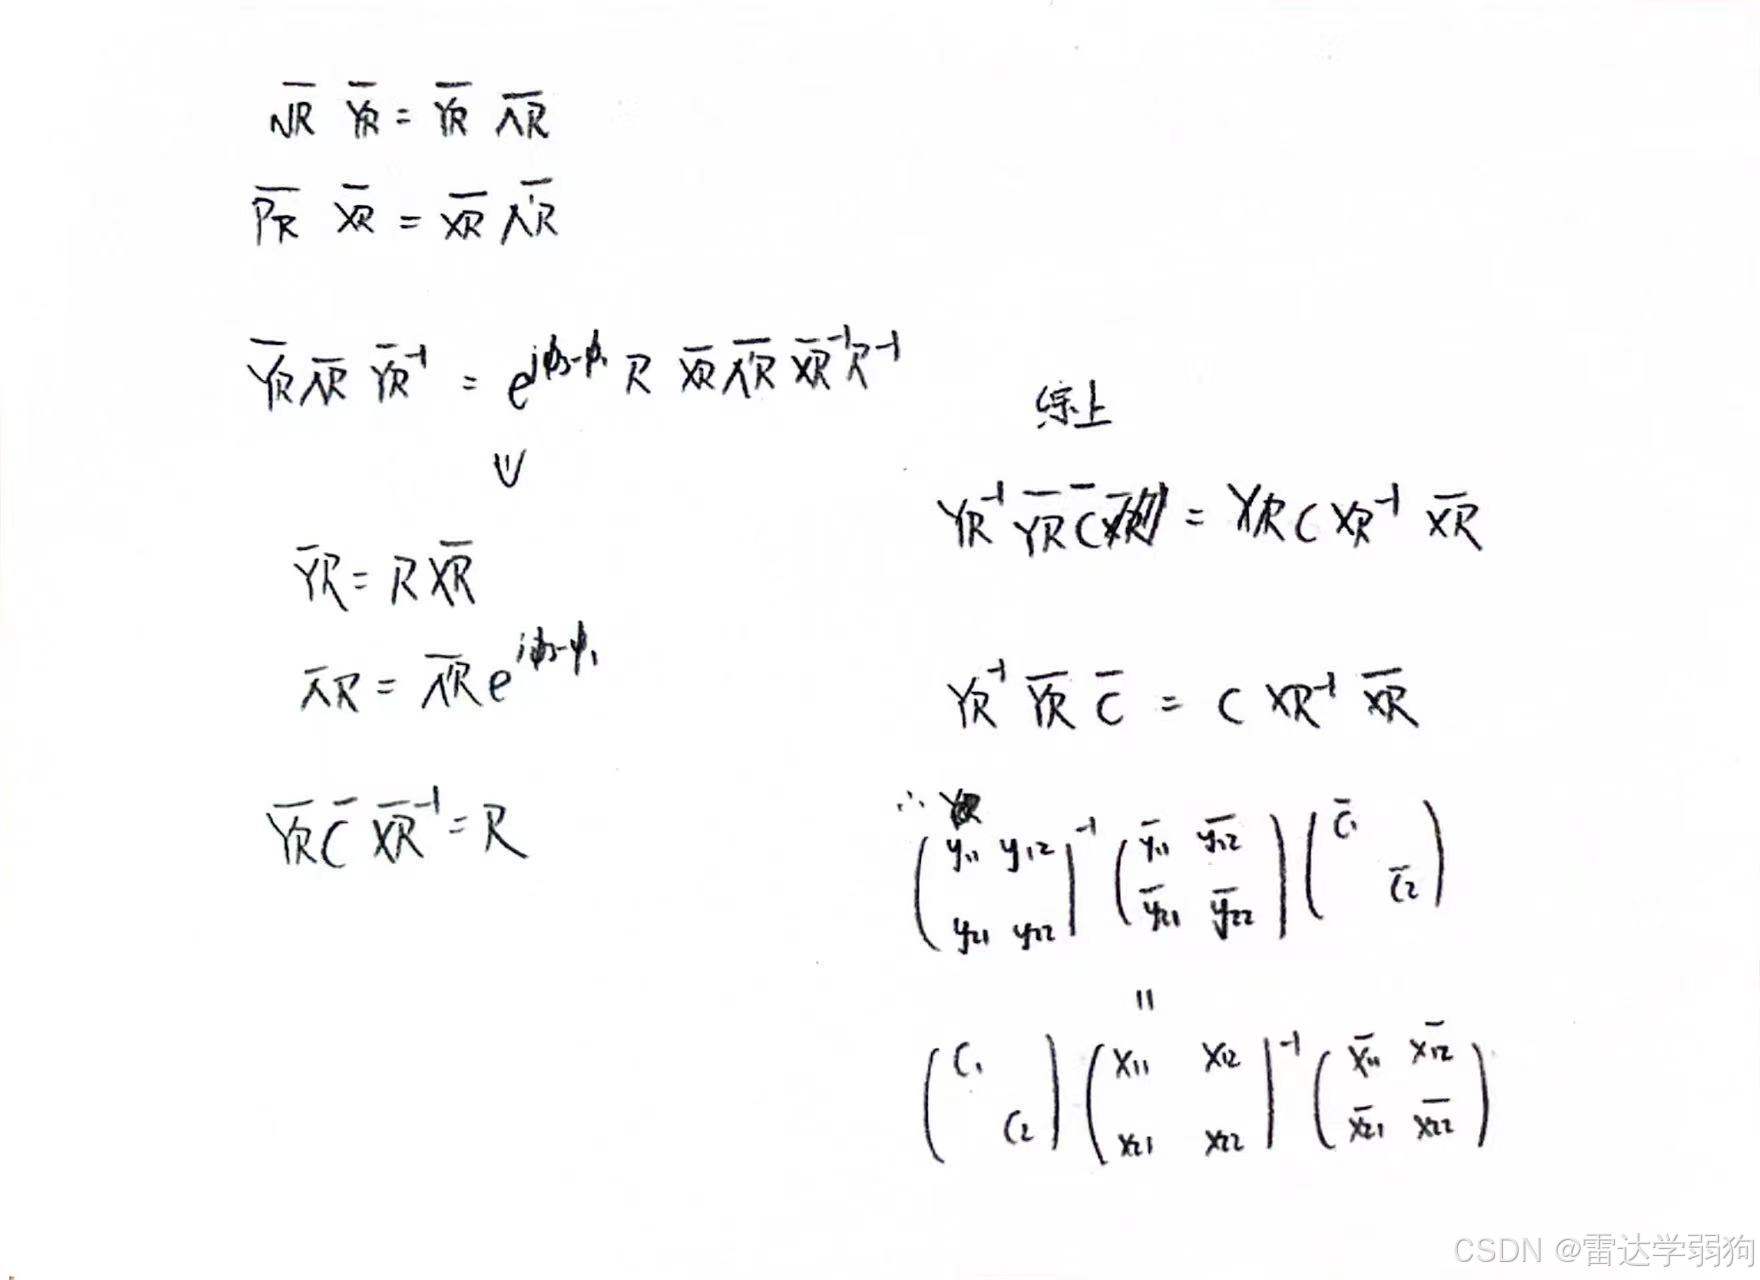 N̅R̅ Y̅R̅ = Y̅R̅ Λ̅R̅
P̅R̅ X̅R̅ = X̅R̅ Λ̅'R̅
Y̅R̅ Λ̅R̅ Y̅R̅⁻¹ = e^{jφ₂-φ₁} R X̅R̅ Λ̅'R̅ X̅R̅⁻¹ R⁻¹
⇓
Y̅R̅ = R X̅R̅
Λ̅R̅ = Λ̅'R̅ e^{jφ₂-φ₁}
Y̅R̅ C̅ X̅R̅⁻¹ = R
综上
YR⁻¹ Y̅R̅ C̅ = YR C XR⁻¹ X̅R̅
YR⁻¹ Y̅R̅ C̅ = C XR⁻¹ X̅R̅
∴
( y₁₁ y₁₂ )⁻¹ ( y̅₁₁ y̅₁₂ ) ( C̅₁ )
( y₂₁ y₂₂ ) ( y̅₂₁ y̅₂₂ ) ( C̅₂ )
=
( C₁ ) ( x₁₁ x₁₂ )⁻¹ ( x̅₁₁ x̅₁₂ )
( C₂ ) ( x₂₁ x₂₂ ) ( x̅₂₁ x̅₂₂ )
CSDN @雷达学弱狗